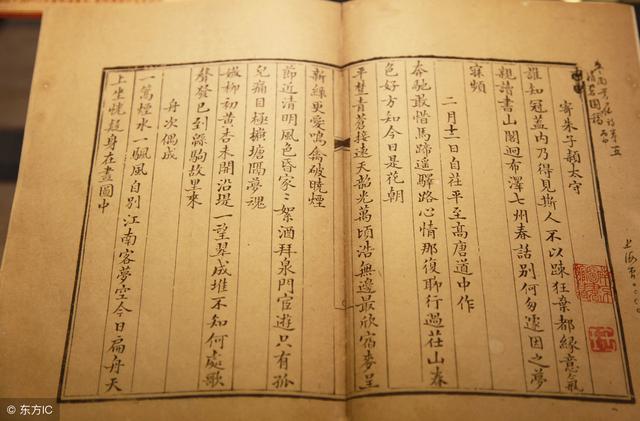 誰知冠蓋內乃得見斯人不以踈狂棄都緣意氣
親譜書山閣迥布澤七州春話別何匆遽因之夢
寐頻
二月十二日自茌平至高唐道中作
奔馳敢惜馬蹄遙驛路心情那復聊行過茌山春
色好方知今日是花朝
平楚青蒼接遠天韶光萬頃浩無邊最欣宿麥呈
新綠更愛鳴禽破曉煙
節近清明風色昏家〻絮酒拜泉門宦遊只有孤
兒痛目極橫塘隔夢魂
嫩柳初黃杏未開沿堤一望翠成堆不知何處歌
聲發已到緜駒故里來
舟次偶成
一篙煙水一颿風自別江南客夢空今日扁舟天
上坐恍疑身在畫圖中
© 东方IC